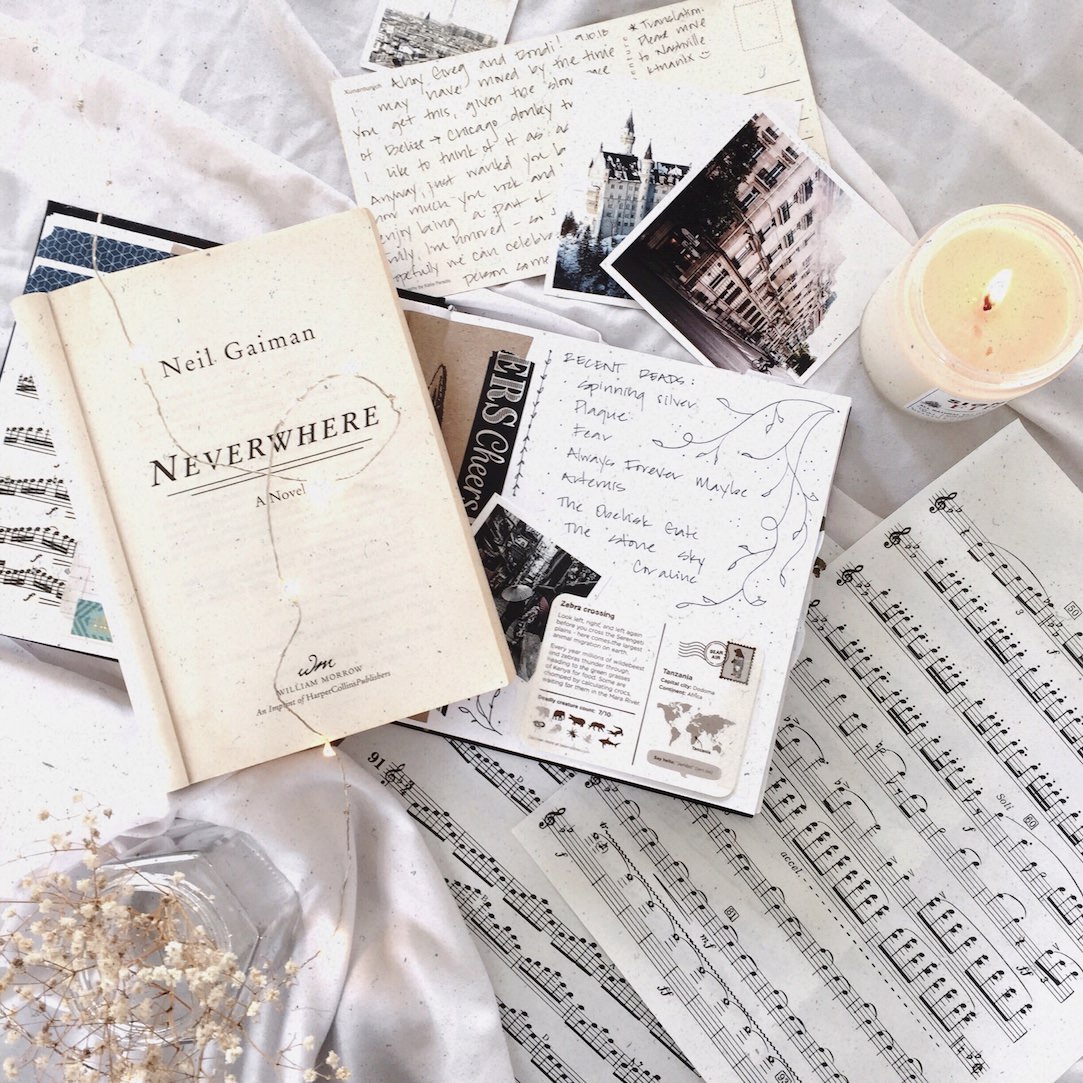 Ahoy Greg and Bondi! 9.10.18
I may have moved by the time
you get this, given the slow
of Belize → Chicago donkey
I like to think of it as
Anyway, just wanted you
how much you rock and
enjoy being a part of
I'm honored
hopefully we can celebra
person some
* Translation:
Please move
to Nashville
kthanlx ☺
Neil Gaiman
NEVERWHERE
A Novel
wm
WILLIAM MORROW
An Imprint of HarperCollinsPublishers
ERS Cheers
RECENT READS:
Spinning Silver
Plaque
Fear
Always Forever Maybe
Artemis
The Obelisk Gate
The Stone Sky
Coraline
Zebra crossing
Look left, right, and left again
before you cross the Serengeti
plains - here comes the largest
animal migration on earth.
Every year millions of wildebeest
and zebras thunder through
heading to the green grasses
of Kenya for food. Some are
chomped by calculating crocs,
waiting for them in the Mara River.
Deadly creature count: 7/10
BEAR
AIR
Tanzania
Capital city: Dodoma
Continent: Africa
Say hello:
91
accel.
Soli
50
60
81
mf
f
ff
3